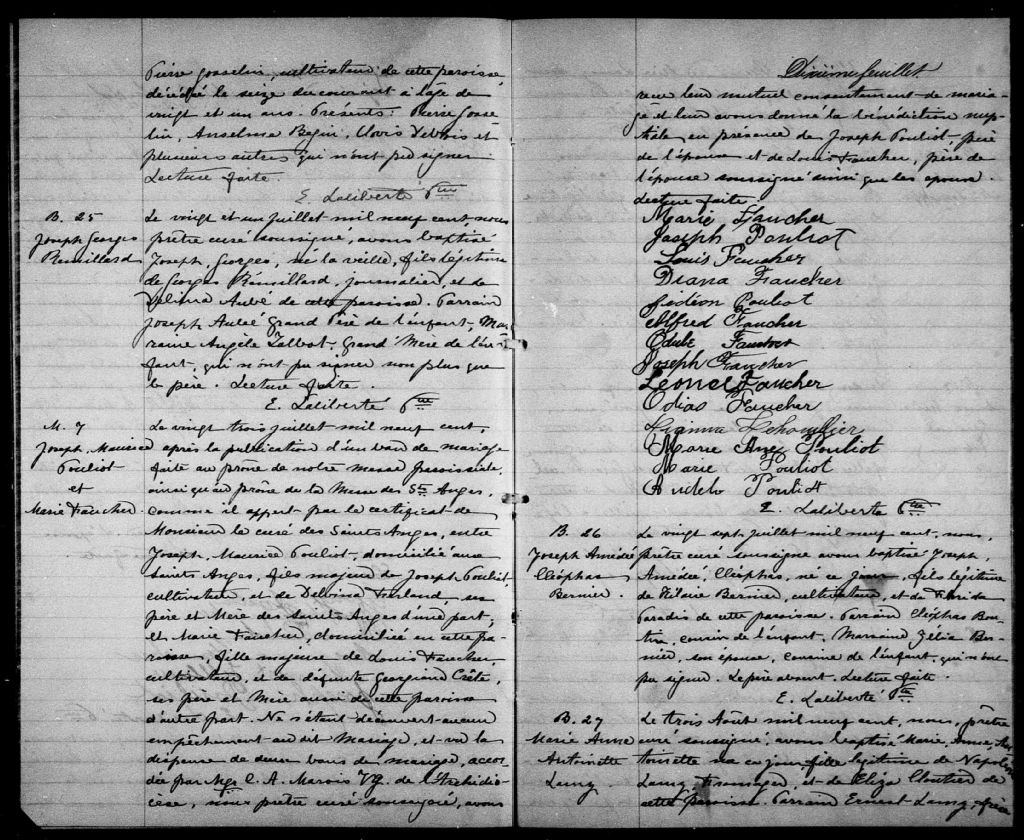 Pierre Gosselin, cultivateur de cette paroisse
décédé le seize du courant à l'âge de
vingt et un ans. Présents: Pierre Gosse-
lin, Anselme Bégin, Clovis et
plusieurs autres qui n'ont pu signer.
Lecture faite.
E. Laliberté Ptre
B. 25
Joseph Georges
Rouillard
Le vingt et un juillet mil neuf cent, nous
prêtre curé soussigné, avons baptisé
Joseph, Georges, né la veille, fils légitime
de Georges Rouillard, journalier, et de
Délima Aubé de cette paroisse. Parrain
Joseph Aubé Grand Père de l'enfant, Mar-
raine Angèle Talbot, Grand'Mère de l'en-
fant, qui n'ont pu signer non plus que
le père. Lecture faite.
E. Laliberté Ptre
M. 7
Joseph, Maurice
Pouliot
et
Marie Faucher
Le vingt trois juillet mil neuf cent,
après la publication d'un ban de mariage
faite au prône de notre messe paroissiale,
ainsi qu'au prône de la Messe des Sts Anges,
comme il appert par le certificat de
Monsieur le curé des Saints Anges, entre
Joseph, Maurice Pouliot, domicilié aux
Saints Anges, fils majeur de Joseph Pouliot,
cultivateur, et de Delvina Ferland, ses
père et Mère des Saints Anges d'une part;
et Marie Faucher, domiciliée en cette pa-
roisse, fille majeure de Louis Faucher,
cultivateur, et de défunte Georgiana Crête,
ses père et Mère aussi de cette paroisse
d'autre part. Ne s'étant découvert aucun
empêchement au dit Mariage, et vu la
dispense de deux bans de mariage, accor-
dée par Mgr C. A. Marois V.G. de l'Archidio-
cèse, nous prêtre curé soussigné, avons
Dixième feuillet
reçu leur mutuel consentement de maria-
ge et leur avons donné la bénédiction nup-
tiale en présence de Joseph Pouliot, père
de l'époux et de Louis Faucher, père de
l'épouse soussigné ainsi que les époux.
Lecture faite
Marie Faucher
Joseph Pouliot
Louis Faucher
Diana Faucher
Gédéon Pouliot
Alfred Faucher
Odule Faucher
Joseph Faucher
Léonel Faucher
Odias Faucher
Marie Ange Pouliot
Marie Pouliot
Pouliot
E. Laliberté Ptre
B. 26
Joseph Amédée
Cléophas
Bernier.
Le vingt sept juillet mil neuf cent, nous,
prêtre curé soussigné avons baptisé Joseph,
Amédée, Cléophas, né ce jour, fils légitime
de Hilaire Bernier, cultivateur, et de Florida
Paradis de cette paroisse. Parrain Cléophas Bou-
tin, cousin de l'enfant, Marraine Zélia Ber-
nier, son épouse, cousine de l'enfant, qui n'ont
pu signer. Le père absent. Lecture faite.
E. Laliberté Ptre
B. 27
Marie Anne
Antoinette
Lamy
Le trois Août mil neuf cent, nous, prêtre
curé soussigné, avons baptisé Marie, Anne, An-
toinette née ce jour, fille légitime de Napoléon
Lamy, Fromager, et de Eliza Cloutier de
cette paroisse. Parrain Ernest Lamy, frère